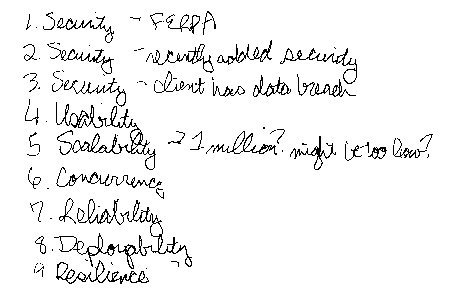 1. Security - FERPA
2. Security - recently added security
3. Security - client has data breach
4. Usability
5 Scalability → 1 million? might be too low?
6. Concurrency
7. Reliability
8. Deployability
9 Resilience